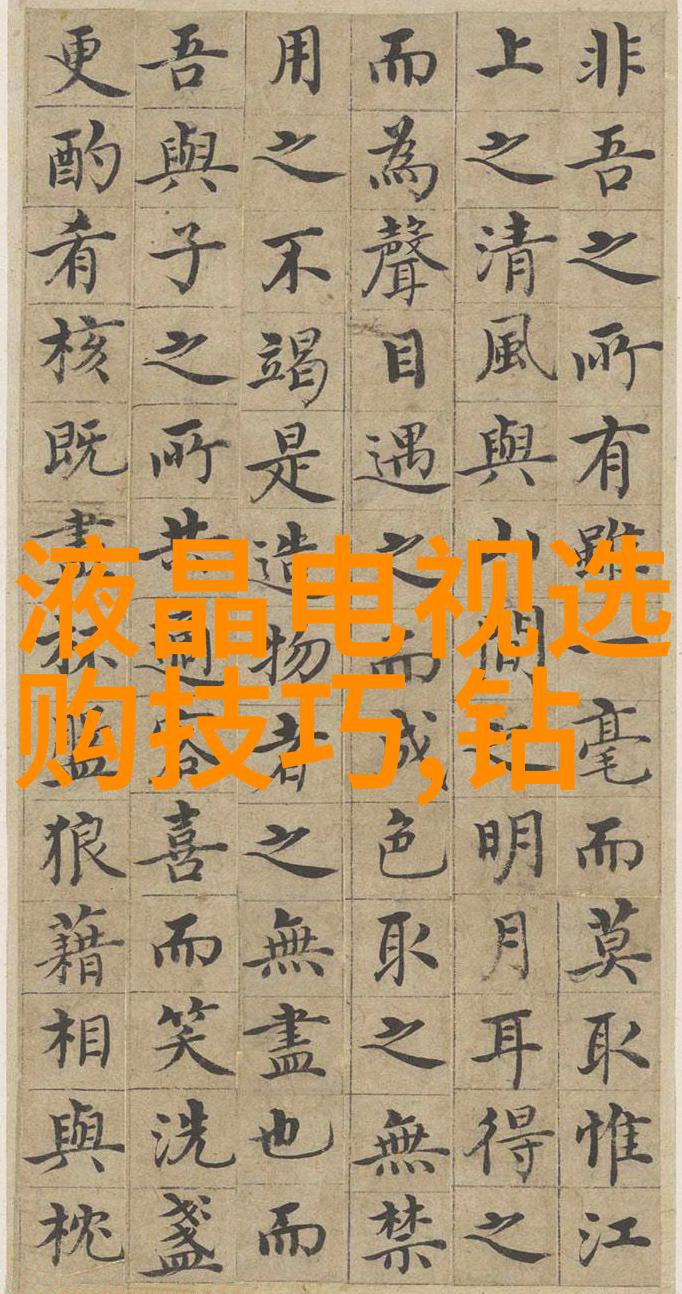 非吾之所有雖一毫而莫取惟江
上之清風與山間之明月耳得之
而為聲目遇之而成色取之無禁
用之不竭是造物者之無盡也而
吾與子之所共適客喜而笑洗盞
更酌肴核既盡杯盤狼藉相與枕
液晶电视选
购技巧,钻